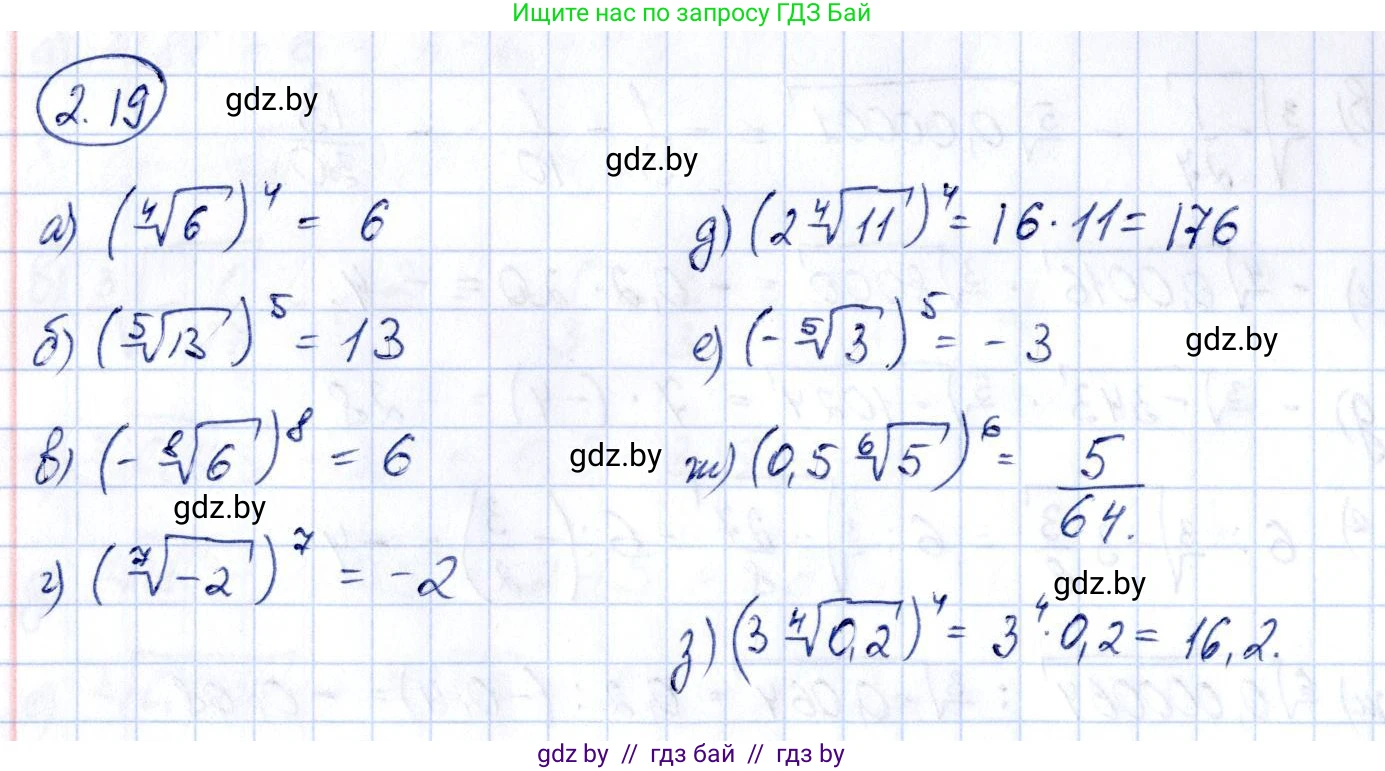 Ищите нас по запросу ГДЗ Бай
2.19
gdz.by
gdz.by
а) (⁴√6)⁴ = 6
б) (⁵√13)⁵ = 13
в) (-⁸√6)⁸ = 6
gdz.by
г) (⁷√-2)⁷ = -2
д) (2 ⁴√11)⁴ = 16·11 = 176
е) (-⁵√3)⁵ = -3
gdz.by
gdz.by
ж) (0,5 ⁶√5)⁶ = 5/64.
gdz.by
з) (3 ⁴√0,2)⁴ = 3⁴·0,2 = 16,2.
gdz.by // гдз бай // гдз by